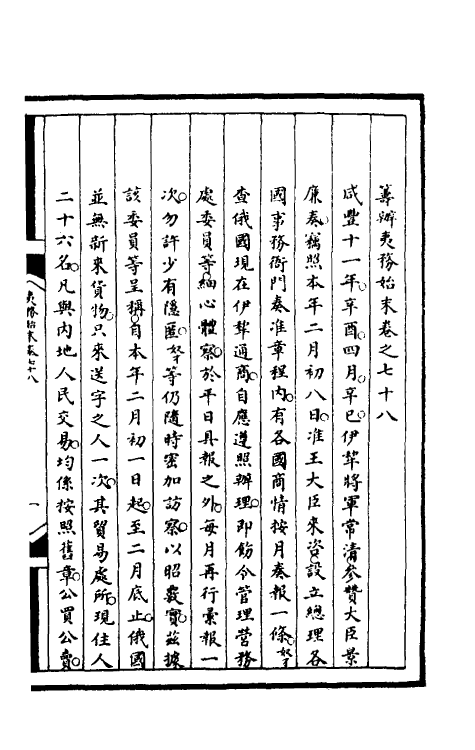 籌辦夷務始末卷之七十八
咸豐十一年。辛酉四月。辛巳伊犂將軍常清。參贊大臣景
廉奏。竊照本年二月初八日。准王大臣來咨。設立總理各
國事務衙門奏准章程內。有各國商情按月奏報一條。奴才
查俄國現在伊犂通商。自應遵照辦理。即飭令管理營務
處委員等。細心體察。於平日具報之外。每月再行彙報一
次。勿許少有隱匿。奴才等仍隨時密加訪察。以昭覈實。茲據
該委員等呈稱。自本年二月初一日起。至二月底止。俄國
並無新來貨物。只來送字之人一次。其貿易處所。現住人
二十六名。凡與內地人民交易。均係按照舊章。公買公賣。
夷務始末卷七十八
一